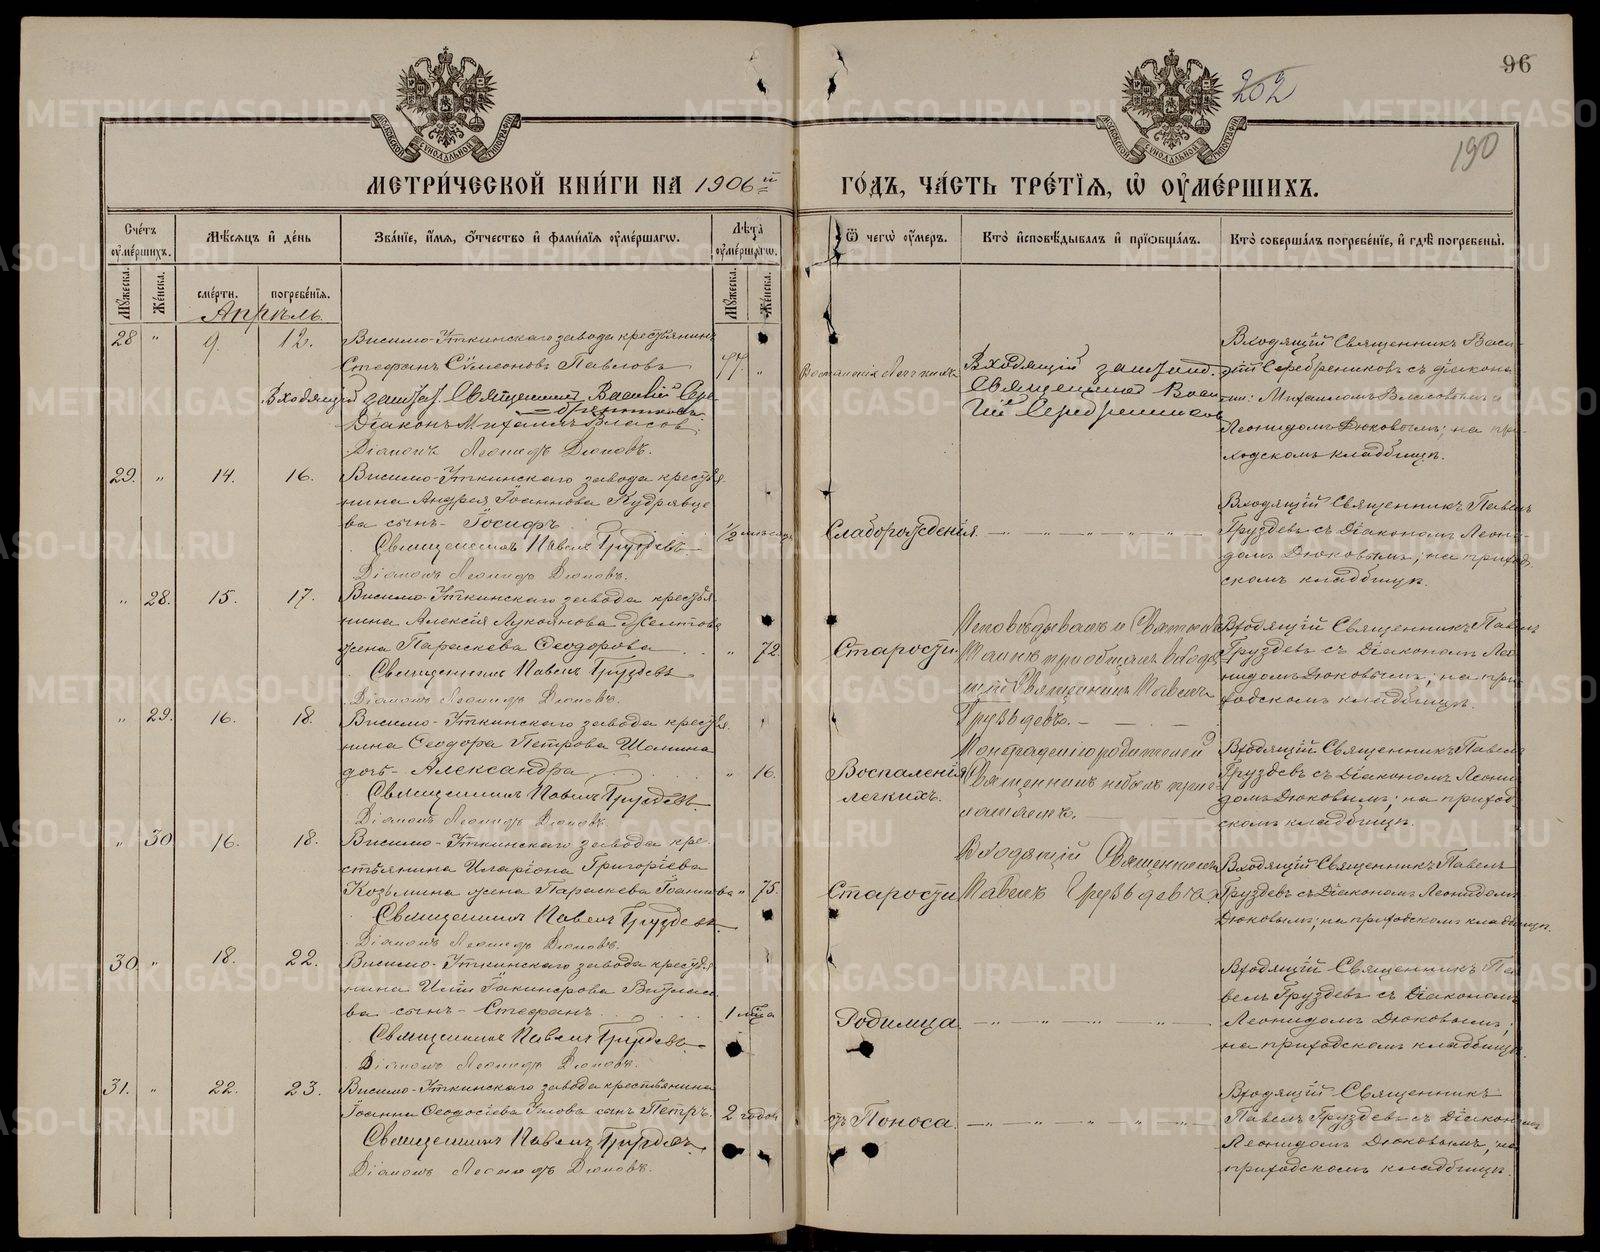 96
202
190
МЕТРИ́ЧЕСКОЙ КНИ́ГИ НА 1906й ГО́ДЪ, ЧА́СТЬ ТРЕ́ТІѦ, Ѡ ОУМЕ́РШИХЪ.
Сче́тъ оуме́ршихъ.
Мѣ́сяцъ и де́нь
Зва́ніе, и́мя, о́тчество и фами́лія оуме́ршагѡ.
Лѣта̀ оуме́ршагѡ.
Ѿ чегѡ̀ оу́меръ.
Кто̀ исповѣ́дывалъ и пріѡбща́лъ.
Кто̀ соверша́лъ погребе́ніе, и гдѣ̀ погребены̀.
Мꙋ́жеска. Же́нска. сме́рти. погребе́нія. Мꙋ́жеска. Же́нска.
Апрѣль.
28 " 9. 12.
Висимо-Уткинскаго завода крестьянинъ
Стефанъ Сѵмеоновъ Павловъ 77. "
Входящій Священникъ Василій Сере-
бренниковъ
Діаконъ Михаилъ Власовъ
Діаконъ Леонидъ Дюковъ.
Входящій
Священникъ Васи-
лій Серебрениковъ
Входящій Священникъ Васи-
лій Серебрениковъ съ діакона-
ми: Михаиломъ Власовымъ и
Леонидомъ Дюковымъ; на при-
ходскомъ кладбищѣ.
29. " 14. 16.
Висимо-Уткинскаго завода крестья-
нина Андрея Іоаннова Кудрявце
ва сынъ - Іосифъ 1/2 мѣсяца
Священникъ Павелъ Груздевъ
Діаконъ Леонидъ Дюковъ.
Слаборожденія
Входящій Священникъ Павелъ
Груздевъ съ Діакономъ Леони-
домъ Дюковымъ; на приход-
скомъ кладбищѣ.
" 28. 15. 17.
Висимо-Уткинскаго завода крестья-
нина Алексія Лукоянова Желтова
жена Параскева Ѳеодорова " 72.
Священникъ Павелъ Груздевъ
Діаконъ Леонидъ Дюковъ.
Старости
Исповѣдывалъ и Святыхъ
Таинъ пріобщалъ входя-
щій Священникъ Павелъ
Груздевъ.
Входящій Священникъ Павелъ
Груздевъ съ Діакономъ Лео-
нидомъ Дюковымъ; на при-
ходскомъ кладбищѣ.
" 29. 16. 18.
Висимо-Уткинскаго завода крестья-
нина Ѳеодора Петрова Шамина
дочь - Александра " 16.
Священникъ Павелъ Груздевъ
Діаконъ Леонидъ Дюковъ.
Воспаленія
легкихъ.
родителей
Священникъ не былъ приг-
лашаемъ.
Входящій Священникъ Павелъ
Груздевъ съ Діакономъ Леони-
домъ Дюковымъ; на приход-
скомъ кладбищѣ.
" 30 16. 18.
Висимо-Уткинскаго завода кре-
стьянина Иларіона Григоріева
Козьмина жена Параскева Іоаннова " 75.
Священникъ Павелъ Груздевъ
Діаконъ Леонидъ Дюковъ.
Старости
Входящій Священникъ
Павелъ Груздевъ
Входящій Священникъ Павелъ
Груздевъ съ Діакономъ Леонидомъ
Дюковымъ; на приходскомъ кладбищѣ.
30 " 18. 22.
Висимо-Уткинскаго завода крестья-
нина Иліи Іакинѳова
ва сынъ - Стефанъ 1 мѣсяца
Священникъ Павелъ Груздевъ
Діаконъ Леонидъ Дюковъ.
Родимца
Входящій Священникъ Па-
велъ Груздевъ съ Діакономъ
Леонидомъ Дюковымъ;
на приходскомъ кладбищѣ.
31. " 22. 23.
Висимо-Уткинскаго завода крестьянина
Іоанна Ѳеодосіева сынъ Петръ. 2 годовъ
Священникъ Павелъ Груздевъ
Діаконъ Леонидъ Дюковъ.
отъ Поноса
Входящій Священникъ
Павелъ Груздевъ съ Діакономъ
Леонидомъ Дюковымъ; на
приходскомъ кладбищѣ.
METRIKI.GASO-URAL.RU